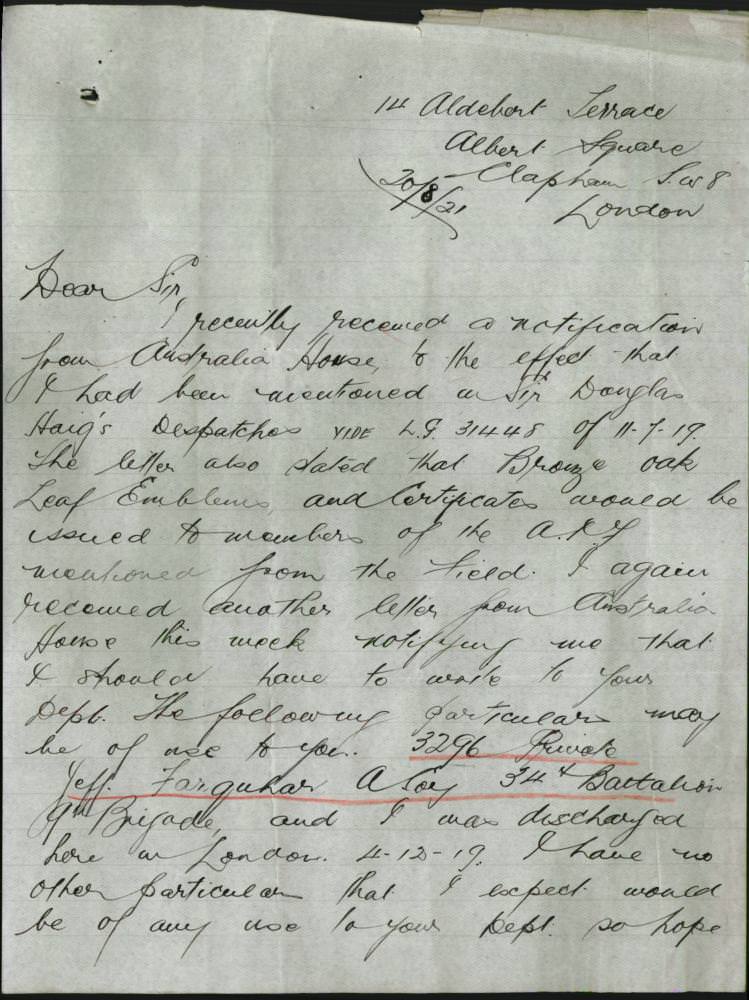 14 Aldebert Terrace
Albert Square
Clapham S.W 8
20/8/21
London
Dear Sir,
I recently received a notification
from Australia House, to the effect that
I had been mentioned in Sir Douglas
Haig's Despatches VIDE L.G. 31448 of 11-7-19.
The letter also stated that Bronze oak
Leaf Emblems, and Certificates would be
issued to members of the A.I.F
mentioned from the Field. I again
received another letter from Australia
House this week notifying me that
I should have to write to your
Dept. The following particulars may
be of use to you. 3296 Private
Jeff. Farquhar A Coy 34th Battalion
9th Brigade, and I was discharged
here in London. 4-12-19. I have no
other particulars that I expect would
be of any use to your Dept. so hope